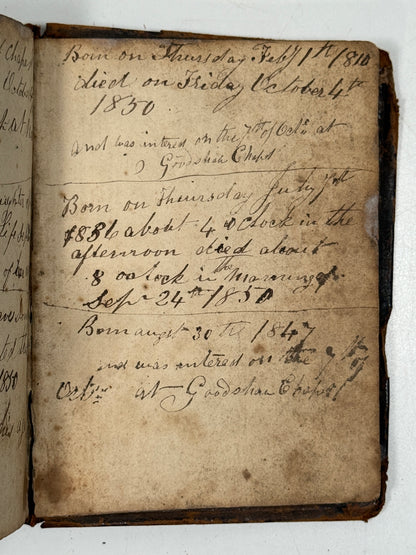 Born on Thursday Feby 1th 1810
died on Friday October 4th
1850
and was interd on the 7th of Octr at
Goodshaw Chapel
Born on Thursday July
1836 about 4 o Clock in the
afternoon died about
8 o clock in the morning of
Sepr 24th 1850
Born august 30th 1847
and was interd on the 7th of
Octr at Goodshaw Chapel
1850